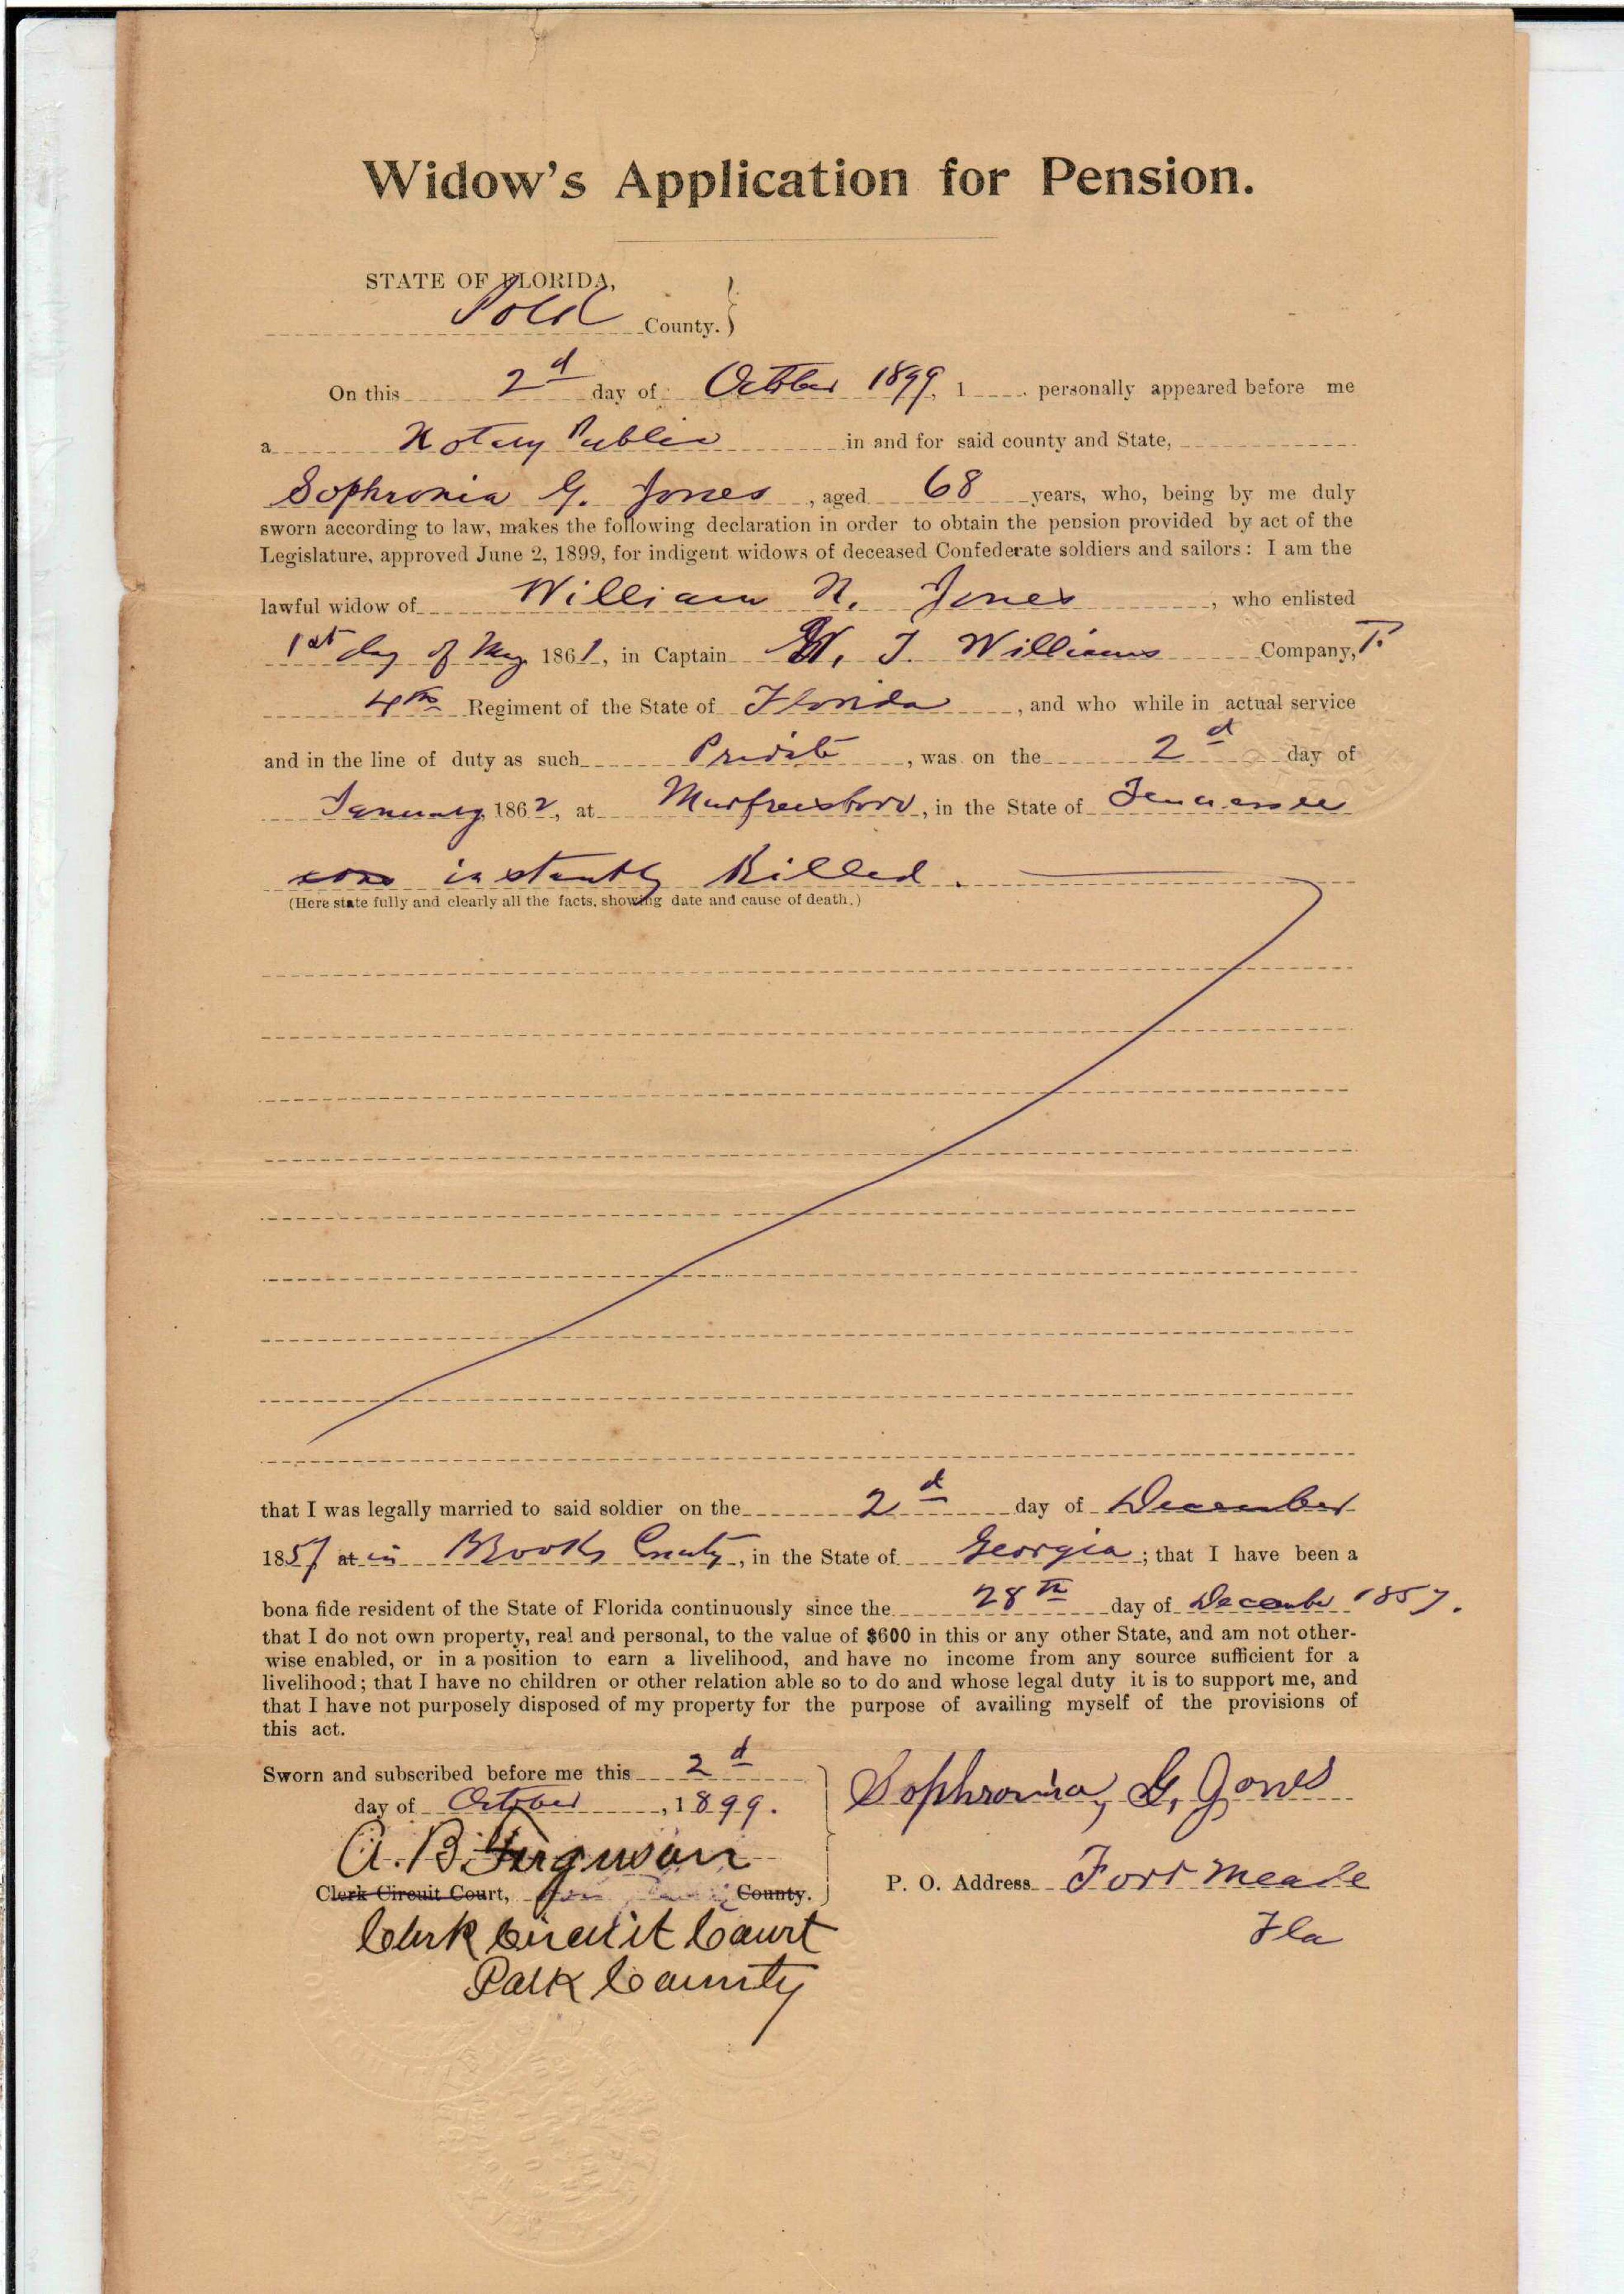 Widow's Application for Pension.
STATE OF FLORIDA,
Polk County. }
On this 2d day of October 1899, 1 personally appeared before me
a Notary Public in and for said county and State,
Sophronia G. Jones, aged 68 years, who, being by me duly
sworn according to law, makes the following declaration in order to obtain the pension provided by act of the
Legislature, approved June 2, 1899, for indigent widows of deceased Confederate soldiers and sailors: I am the
lawful widow of William N. Jones, who enlisted
1st day of May 1861, in Captain W. J. Williams Company,
4th Regiment of the State of Florida, and who while in actual service
and in the line of duty as such Private, was on the 2d day of
January 1862, at Murfreesboro, in the State of Tennessee
instantly Killed.
(Here state fully and clearly all the facts, showing date and cause of death.)
that I was legally married to said soldier on the 2d day of December
1857 at in Brooks County, in the State of Georgia; that I have been a
bona fide resident of the State of Florida continuously since the 28th day of December 1857.
that I do not own property, real and personal, to the value of $600 in this or any other State, and am not other-
wise enabled, or in a position to earn a livelihood, and have no income from any source sufficient for a
livelihood; that I have no children or other relation able so to do and whose legal duty it is to support me, and
that I have not purposely disposed of my property for the purpose of availing myself of the provisions of
this act.
Sworn and subscribed before me this 2d
day of October, 1899.
Sophronia, G, Jones
A. B. Ferguson
Clerk Circuit Court, County.
P. O. Address Fort Meade
Fla
Clerk Circuit Court
Polk County